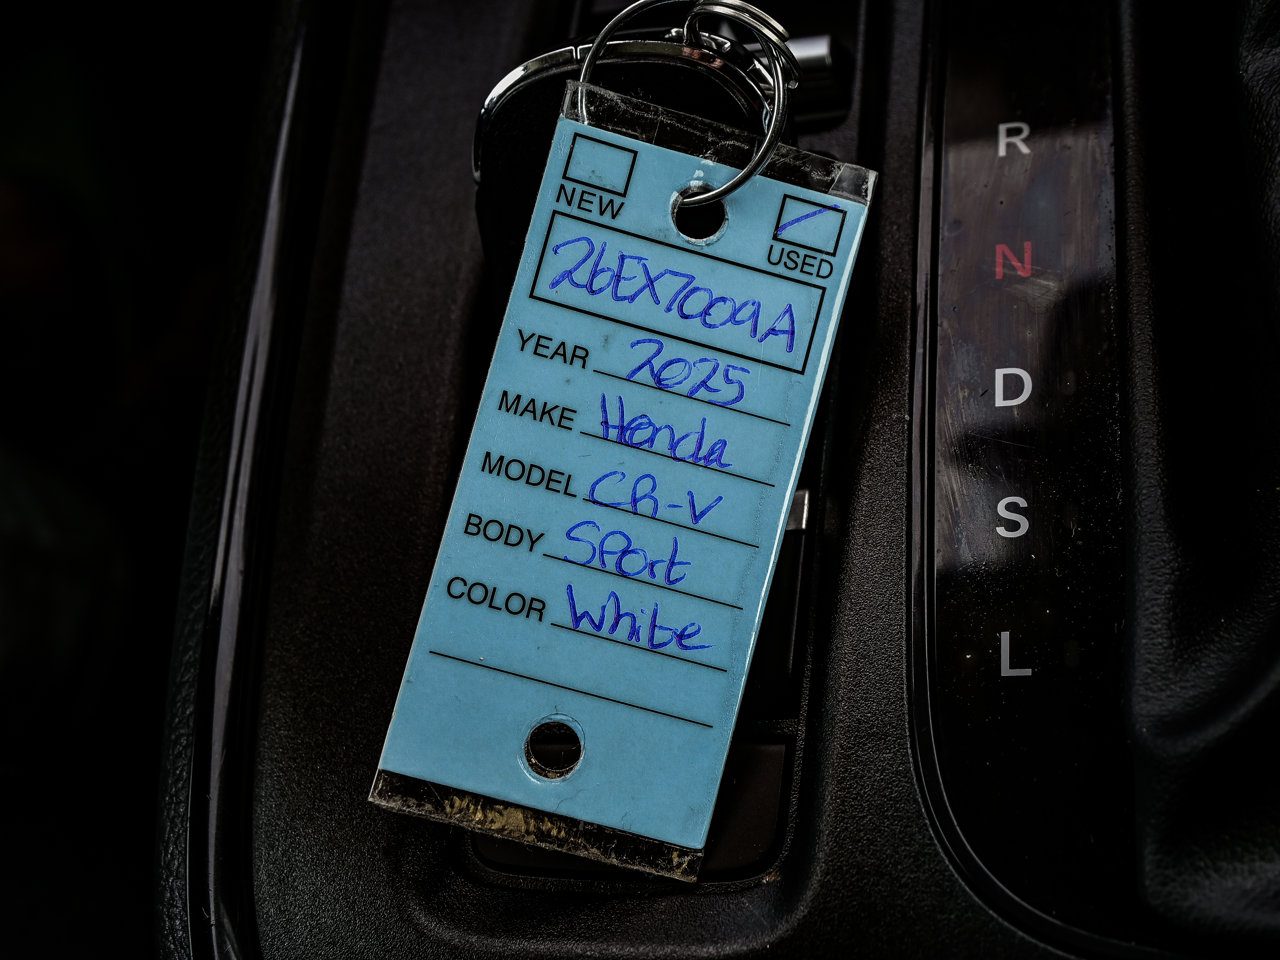 NEW
USED
26EX7009A
YEAR 2025
MAKE Honda
MODEL CR-V
BODY Sport
COLOR White
R
N
D
S
L